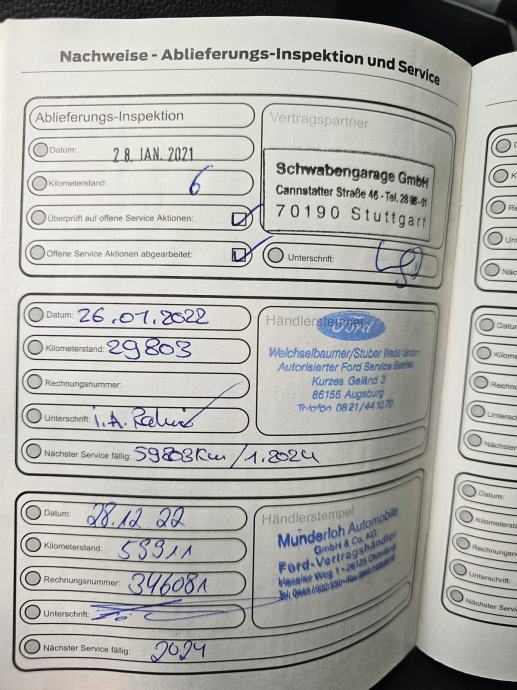 Nachweise - Ablieferungs-Inspektion und Service
Ablieferungs-Inspektion
Datum: 28. JAN. 2021
Kilometerstand: 6
Überprüft auf offene Service Aktionen:
Offene Service Aktionen abgearbeitet:
Vertragspartner
Schwabengarage GmbH
Cannstatter Straße 46 - Tel.
70190 Stuttgart
Unterschrift:
Datum: 26.01.2022
Kilometerstand: 29803
Rechnungsnummer:
Unterschrift: i.A.
Nächster Service fällig: 59803 Km / 1.2024
Händlerstempel
Ford
Weichselbaumer/Stuber West GmbH
Autorisierter Ford Service Betrieb
Kurzes Geländ 3
86156 Augsburg
Telefon 0821/441070
Datum: 28.12.22
Kilometerstand: 59911
Rechnungsnummer: 346081
Unterschrift:
Nächster Service fällig: 2024
Händlerstempel
Munderloh Automobile
GmbH & Co. KG
Ford-Vertragshändler
Weg 1 - 26125
Datum:
Datum:
Nächster Service